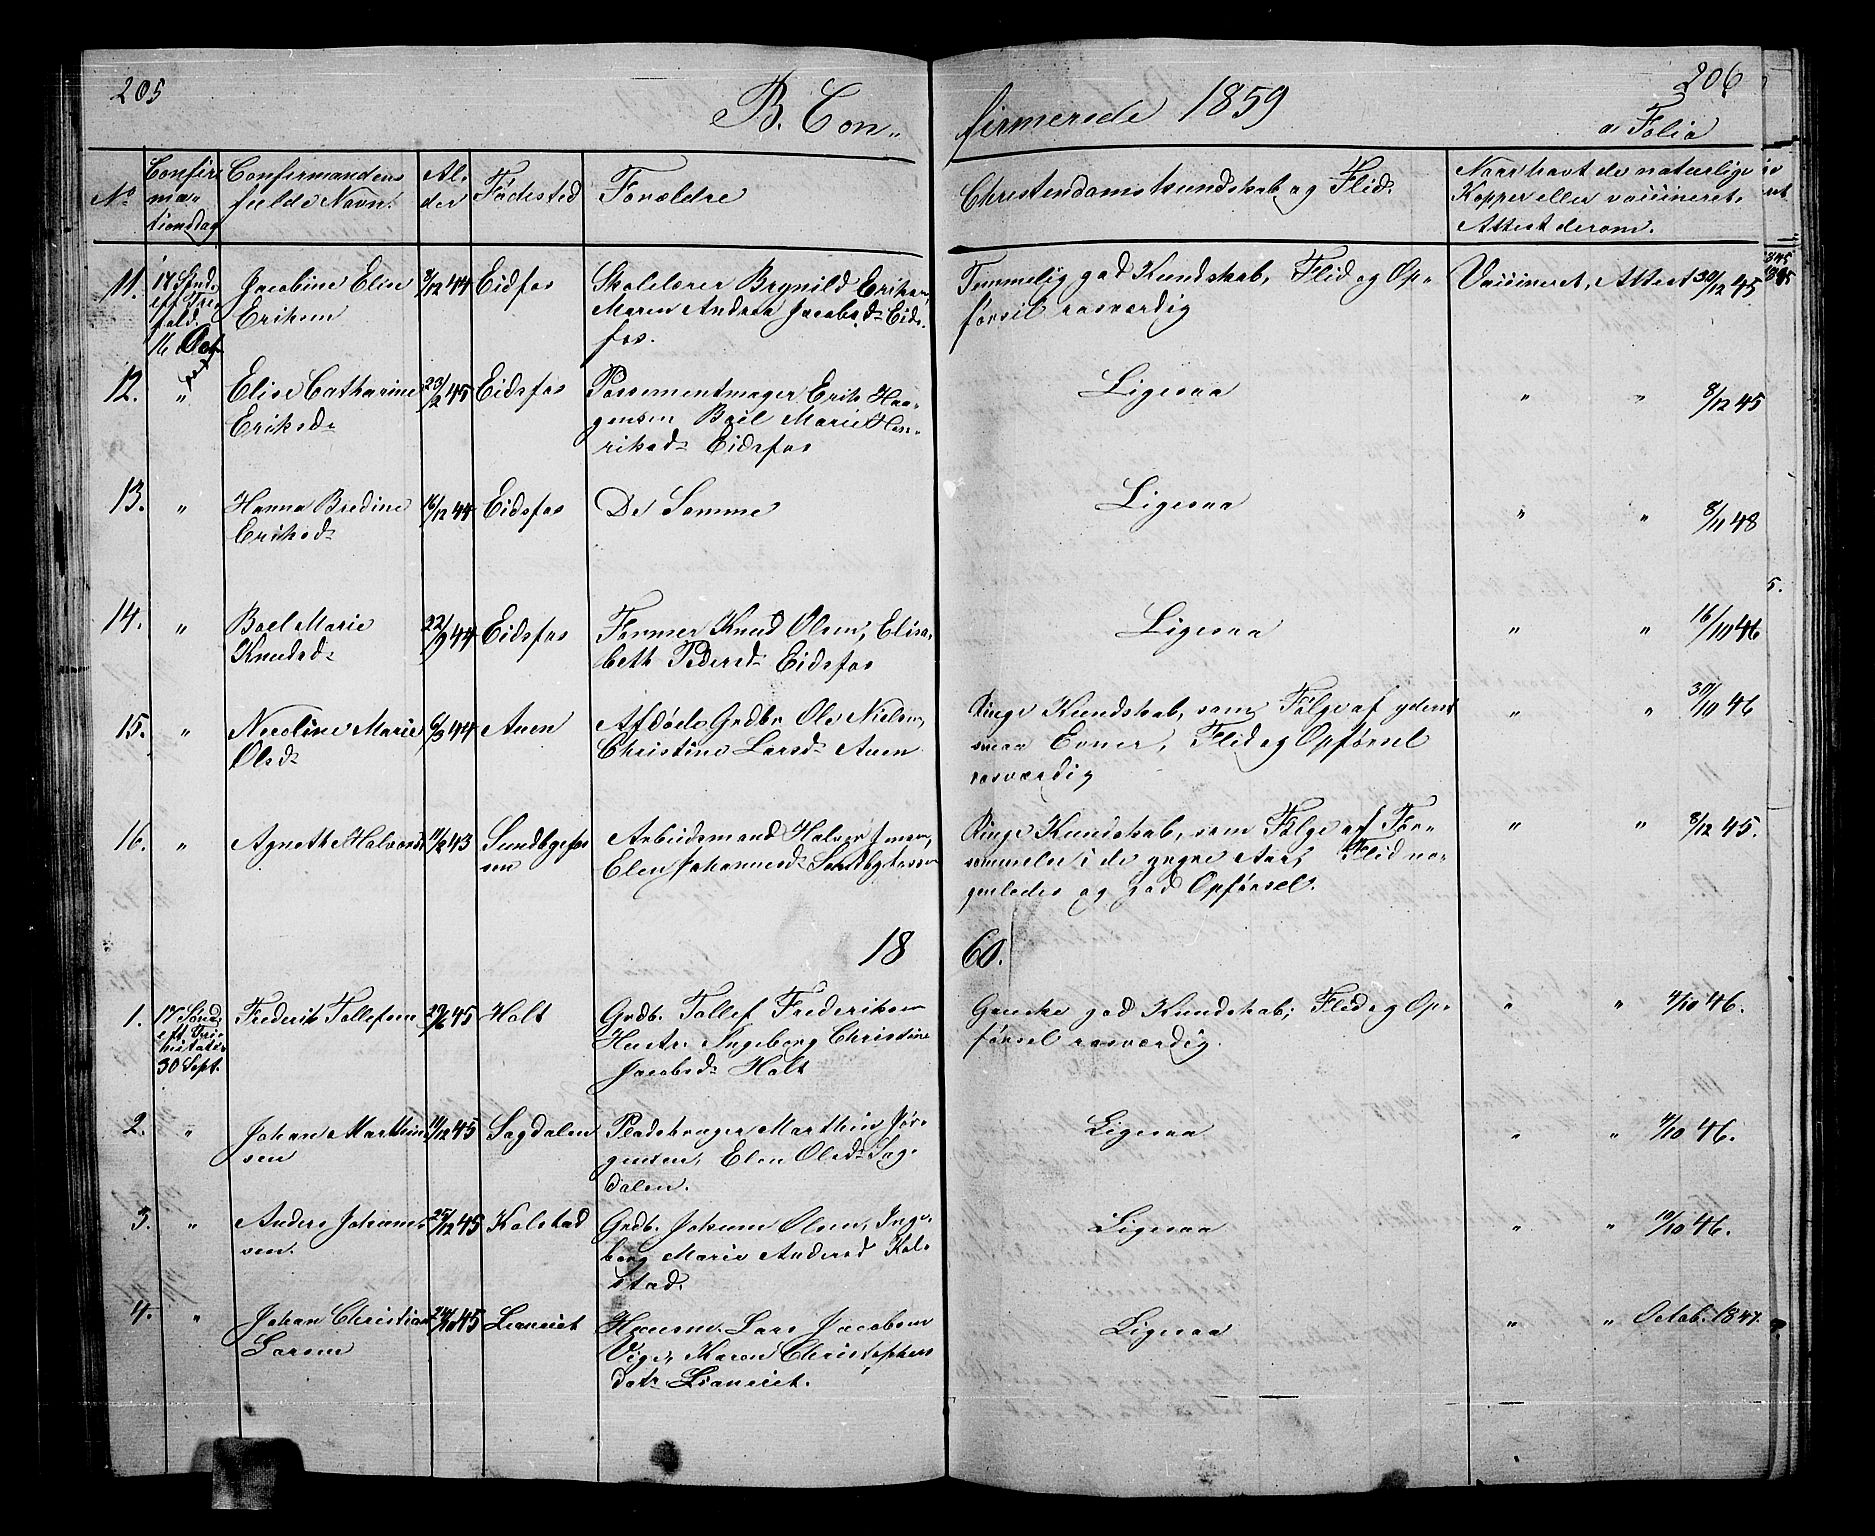 205
206
B. Con-
firmerede 1859
a Folio
No
Confir
ma-
tionsdag
Confirmandens
fulde Navn.
Al-
der
Fødested
Forældre
Christendomskundskab og Flid.
Naar havt de naturlige
Kopper eller vaccineret,
Attest derom.
11.
17 Sønd.
16 Oct
Jacobine Elise
Eriksen
9/12 44
Eidsfos
Skolelærer Brynild Eriksen,
Maren Andrea Jacobsd. Eids-
fos.
Temmelig god Kundskab, Flid og Op-
førsel rosværdig
Vaccineret, Attest 30/12 45
12.
"
Elise Cathrine
Eriksd.
23/2 45
Eidsfos
Possementmager Erik Haa-
gensen Boel Marie Hen-
riksd. Eidsfos
Ligesaa
" " 8/12 45
13.
"
Hanna Bredine
Eriksd.
16/12 44
Eidsfos
De Samme
Ligesaa
" " 8/11 48
14.
"
Boel Marie
Knudsd.
22/9 44
Eidsfos
Former Knud Olsen, Elisa-
beth Pedersd. Eidsfos
Ligesaa
" " 16/10 46
15.
"
Nicoline Marie
Olsd.
6/3 44
Auen
Afdøde Grdbr. Ole Nielsen,
Christine Larsd. Auen
Ringe Kundskab, som Følge af yderst
smaa Evner, Flid og Opførsel
rosværdig
" " 30/10 46
16.
"
Agnethe Halvorsd.
11/2 43
Sundbyfos
sen
Arbeidsmand Halvor
Elen Johannesd. Sundbyfossen
Ringe Kundskab, som Følge af For-
sømmelse i de yngre Aar, Flid no-
genledes og god Opførsel.
" " 8/12 45.
18
60.
1.
17 Sønd.
eft. Tri-
nitatis
30 Sept.
Frederik Tollefsen
29/6 45
Holt
Grdb. Tollef Frederiksen
Hustr. Ingeborg Christine
Jacobsd. Holt
Ganske god Kundskab; Flid og Op-
førsel rosværdig.
" " 4/10 46.
2.
"
Johan Marthin-
sen
11/12 45
Sagdalen
Pladsbruger Marthin Jør-
gensen, Elen Olsd. Sag-
dalen.
Ligesaa
" " 4/10 46.
3.
"
Anders Johann-
sen.
25/12 45
Kolstad
Grdb. Johann Olsen, Inge-
borg Marie Andersd. Kol-
stad.
Ligesaa
" " 10/10 46.
4.
"
Johan Christian
Larsen
24/10 45
Lianeiet
Husm. Lars Jacobsen
Vige, Karen Christophers
datr. Lianeiet.
Ligesaa
" " Octob. 1847.